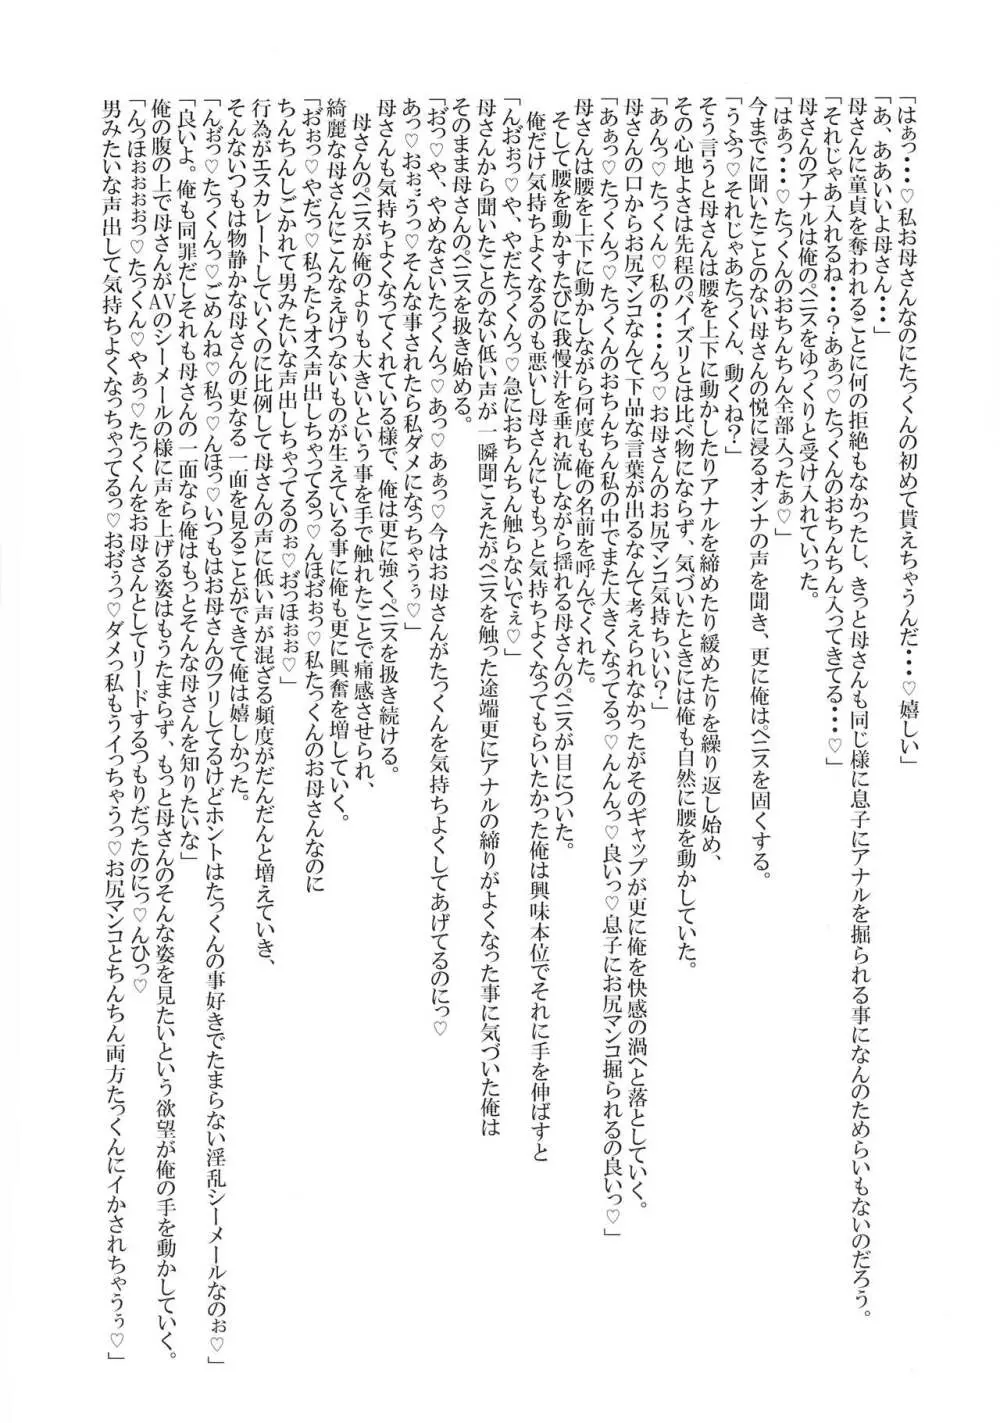 「はぁっ・・・♡私お母さんなのにたっくんの初めて貰えちゃうんだ・・・♡嬉しい」
「あ、ああいいよ母さん・・・」
母さんに童貞を奪われることに何の拒絶もなかったし、きっと母さんも同じ様に息子にアナルを掘られる事になんのためらいもないのだろう。
「それじゃあ入れるね・・・？あぁっ♡たっくんのおちんちん入ってきてる・・・♡」
母さんのアナルは俺のペニスをゆっくりと受け入れていった。
「はぁっ・・・♡たっくんのおちんちん全部入ったぁ♡」
今までに聞いたことのない母さんの悦に浸るオンナの声を聞き、更に俺はペニスを固くする。
「うふっ♡それじゃあたっくん、動くね？」
そう言うと母さんは腰を上下に動かしたりアナルを締めたり緩めたりを繰り返し始め、
その心地よさは先程のパイズリとは比べ物にならず、気づいたときには俺も自然に腰を動かしていた。
「あんっ♡たっくん♡私の・・・んっ♡お母さんのお尻マンコ気持ちいい？」
母さんの口からお尻マンコなんて下品な言葉が出るなんて考えられなかったがそのギャップが更に俺を快感の渦へと落としていく。
「あぁっ♡たっくんのおちんちん私の中でまた大きくなってるっ♡んんんっ♡良いっ♡息子にお尻マンコ掘られるの良いっ♡」
母さんは腰を上下に動かしながら何度も俺の名前を呼んでくれた。
そして腰を動かすたびに我慢汁を垂れ流しながら揺れる母さんのペニスが目についた。
俺だけ気持ちよくなるのも悪いし母さんにももっと気持ちよくなってもらいたかった俺は興味本位でそれに手を伸ばすと
「んお゛ぉっ♡や、やだたっくんっ♡急におちんちん触らないでぇ♡」
母さんから聞いたことのない低い声が一瞬聞こえたがペニスを触った途端更にアナルの締りがよくなった事に気づいた俺は
そのまま母さんのペニスを扱き始める。
「お゛っ♡や、やめなさいたっくんっ♡あっ♡あぁっ♡今はお母さんがたっくんを気持ちよくしてあげてるのにっ♡
あっ♡おぉ゛うっ♡そんな事されたら私ダメになっちゃうぅ♡」
母さんも気持ちよくなってくれている様で、俺は更に強くペニスを扱き続ける。
母さんのペニスが俺のよりも大きいという事を手で触れたことで痛感させられ、
綺麗な母さんにこんなえげつないものが生えている事に俺も更に興奮を増していく。
「お゛ぉっ♡やだっ♡私ったらオス声出しちゃってるっ♡んほお゛ぉっ♡私たっくんのお母さんなのに
ちんちんしごかれて男みたいな声出しちゃってるのぉ♡お゛っほぉぉ♡」
行為がエスカレートしていくのに比例して母さんの声に低い声が混ざる頻度がだんだんと増えていき、
そんないつもは物静かな母さんの更なる一面を見ることができて俺は嬉しかった。
「んお゛っ♡たっくんっ♡ごめんね♡私っ♡んほっ♡いつもはお母さんのフリしてるけどホントはたっくんの事好きでたまらない淫乱シーメールなのぉ♡」
「良いよ。俺も同罪だしそれも母さんの一面なら俺はもっとそんな母さんを知りたいな」
俺の腹の上で母さんがAVのシーメールの様に声を上げる姿はもうたまらず、もっと母さんのそんな姿を見たいという欲望が俺の手を動かしていく。
「んっほぉぉぉぉっ♡たっくん♡やぁっ♡たっくんをお母さんとしてリードするつもりだったのにっ♡んひっ♡
男みたいな声出して気持ちよくなっちゃってるっ♡おお゛ぅっ♡ダメっ私もうイっちゃうっ♡お尻マンコとちんちん両方たっくんにイかされちゃうぅ♡」